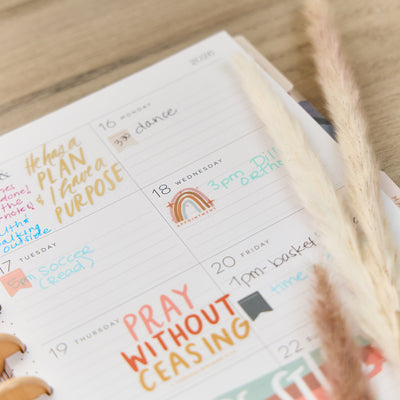 2026
16 MONDAY
3pm
dance
He has a
PLAN
& I have a
PURPOSE
done!
the
outside
17 TUESDAY
5pm soccer
(Read)
18 WEDNESDAY
APPOINTMENT
3pm
19 THURSDAY
PRAY
WITHOUT
CEASING
20 FRIDAY
1pm-basket
time
22